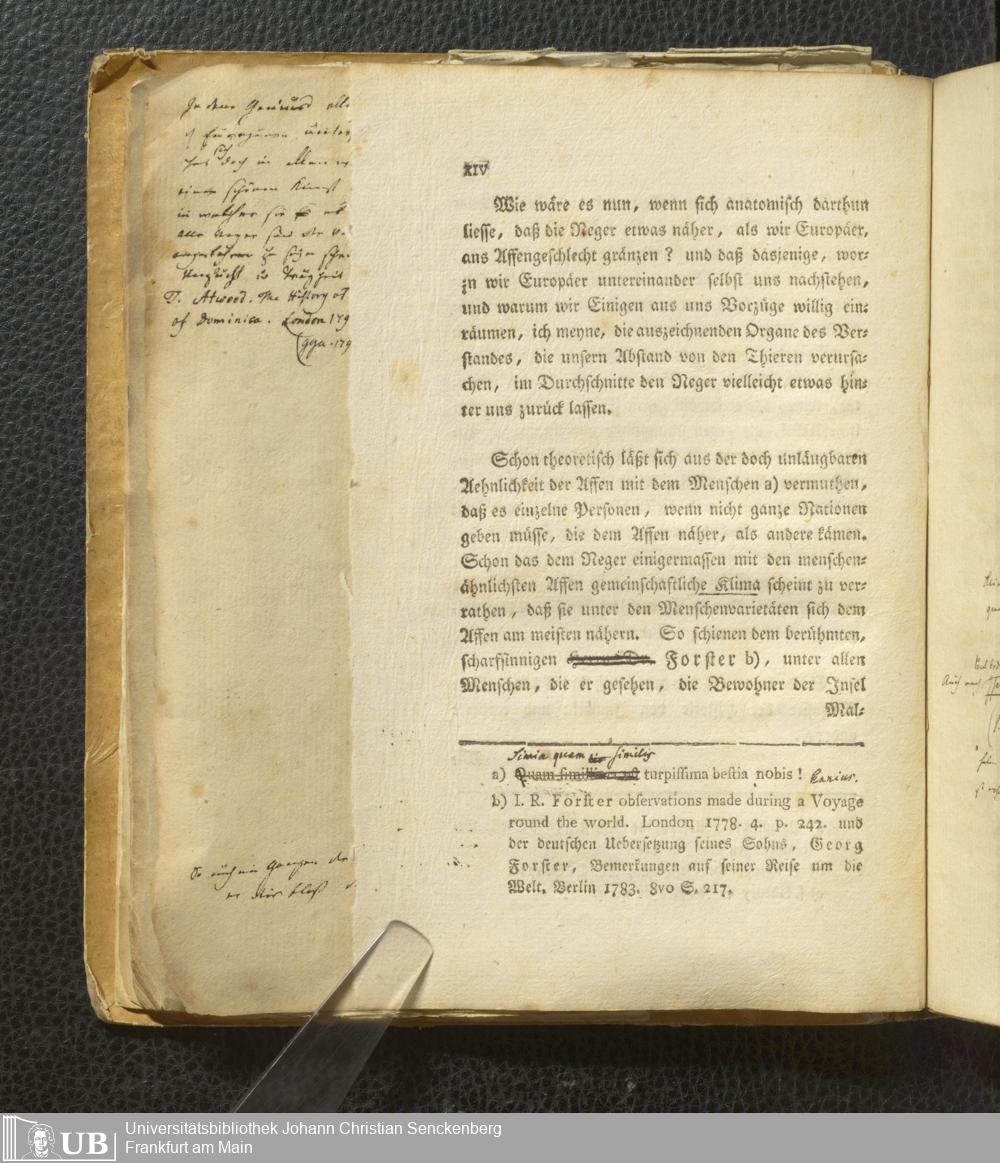 XIV
Wie wäre es nun, wenn sich anatomisch darthun
liesse, daß die Neger etwas näher, als wir Europäer,
ans Affengeschlecht gränzen? und daß dasjenige, wor-
zn wir Europäer untereinander selbst uns nachstehen,
und warum wir Einigen aus uns Vorzüge willig ein-
räumen, ich meyne, die auszeichnenden Organe des Ver-
standes, die unsern Abstand von den Thieren verursa-
chen, im Durchschnitte den Neger vielleicht etwas hin-
ter uns zurück lassen.
Schon theoretisch läßt sich aus der doch unläugbaren
Aehnlichkeit der Affen mit dem Menschen a) vermuthen,
daß es einzelne Personen, wenn nicht ganze Nationen
geben müsse, die dem Affen näher, als andere kämen.
Schon das dem Neger einigermassen mit den menschen-
ähnlichsten Affen gemeinschaftliche Klima scheint zu ver-
rathen, daß sie unter den Menschenvarietäten sich dem
Affen am meisten nähern. So schienen dem berühmten,
scharfsinnigen Forster b), unter allen
Menschen, die er gesehen, die Bewohner der Insel
Mal-
Simia quam similis
a) Quam turpissima bestia nobis! Ennius.
b) I. R. Forster observations made during a Voyage
round the world. London 1778. 4. p. 242. und
der deutschen Uebersetzung seines Sohns, Georg
Forster, Bemerkungen auf seiner Reise um die
Welt. Berlin 1783. 8vo S. 217.
in welcher sie
alle Neger
T. Atwood. The History of
of Dominica. London 179
179
UB
Universitätsbibliothek Johann Christian Senckenberg
Frankfurt am Main